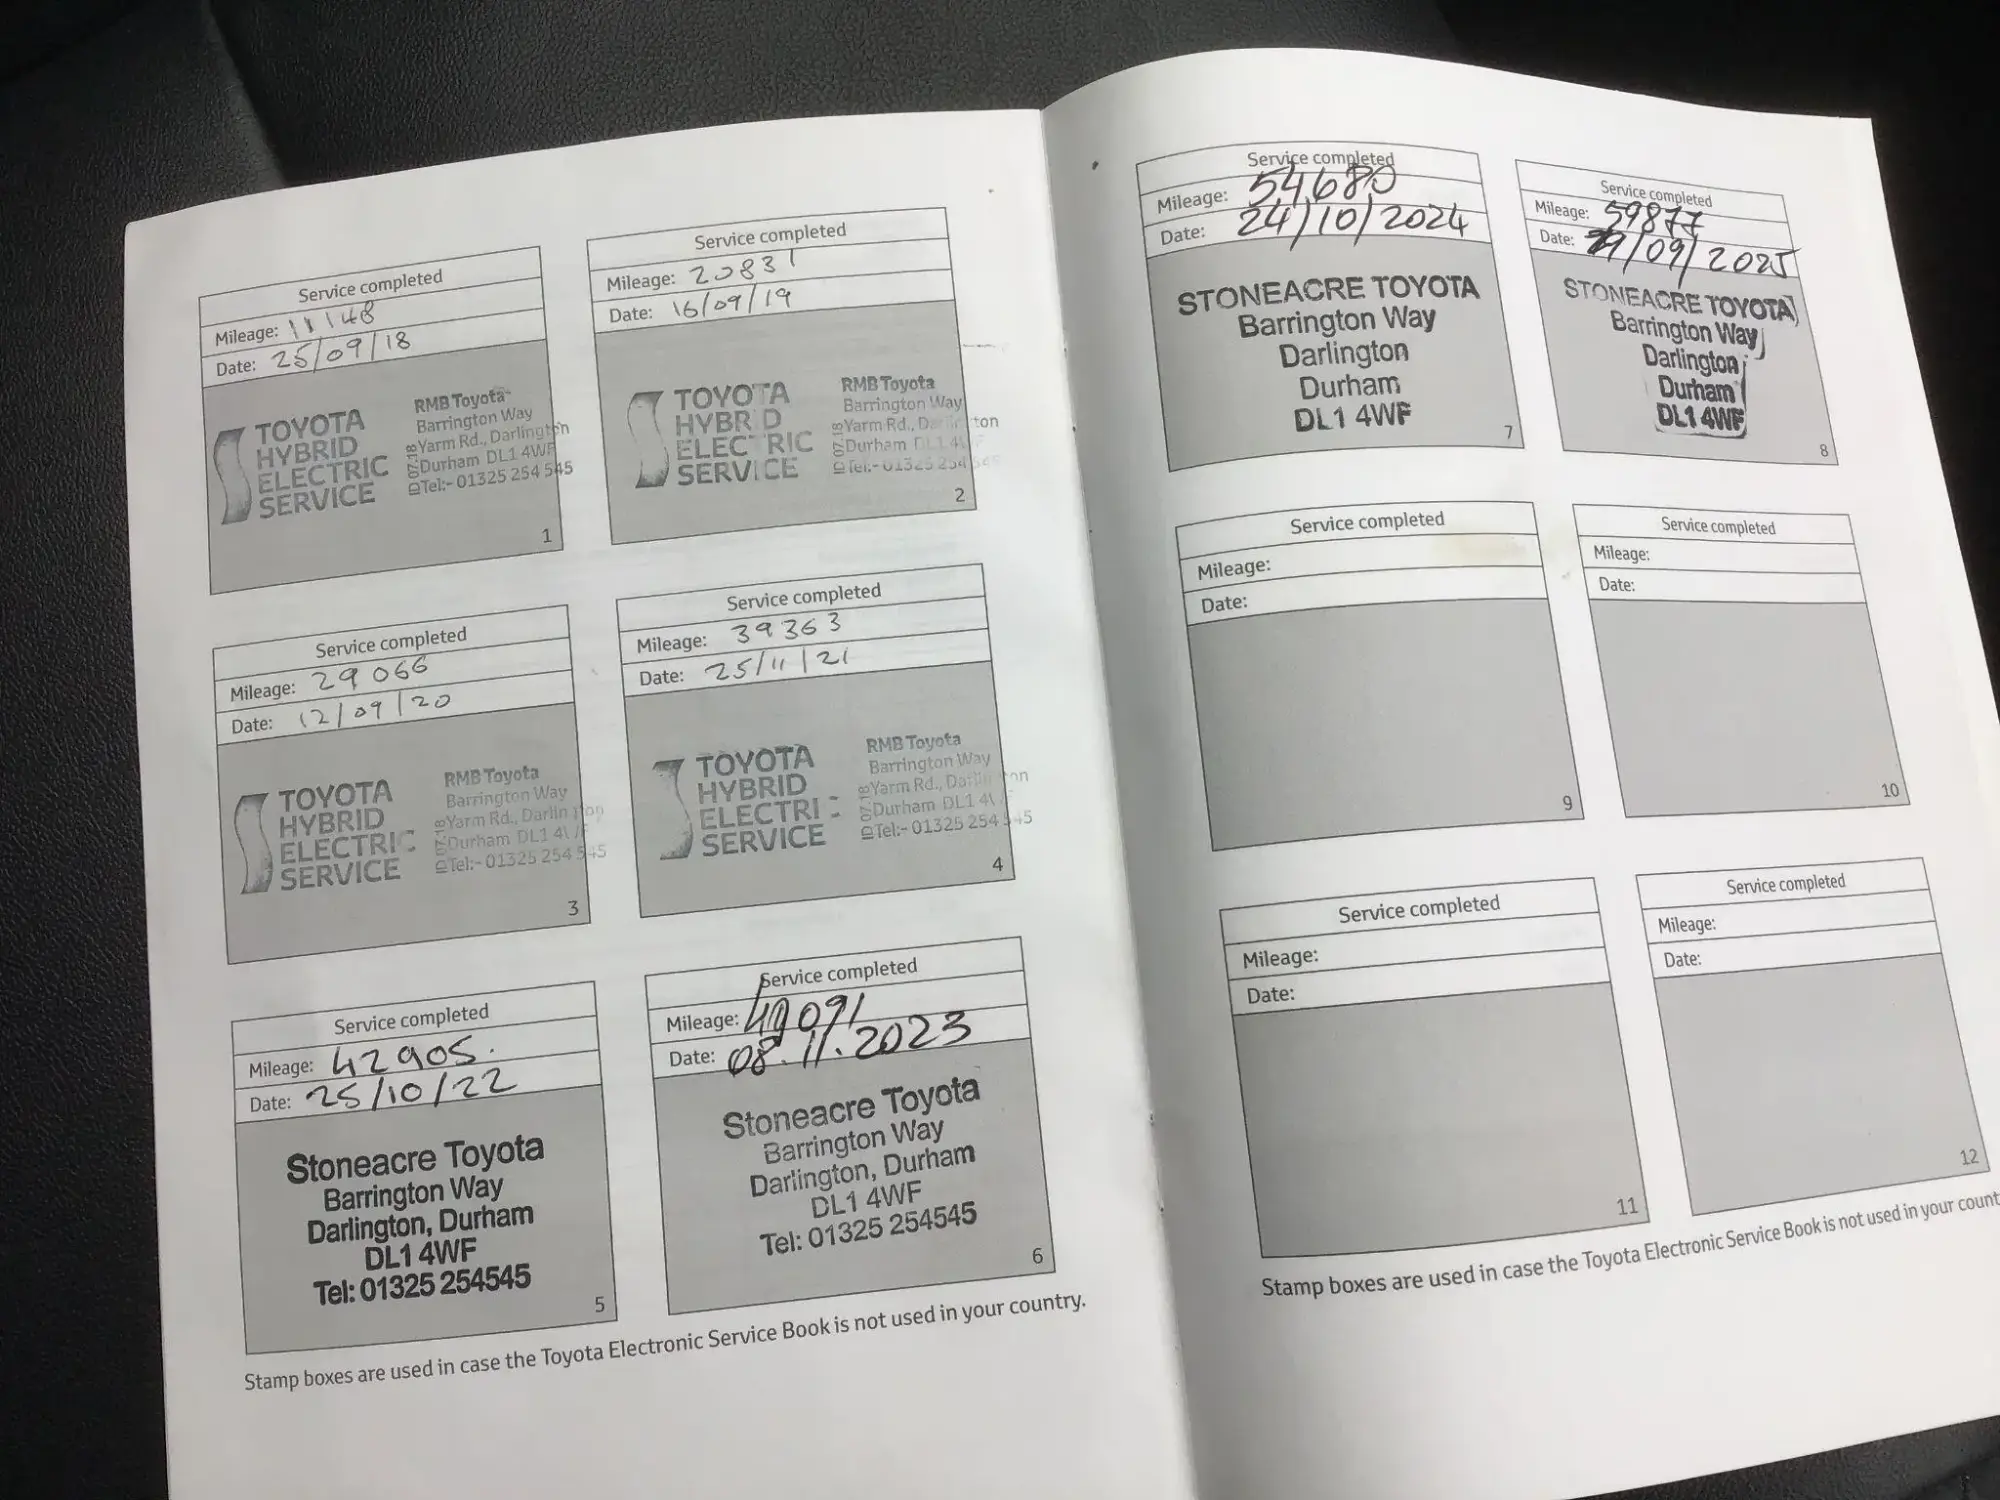 Service completed
Mileage: 11148
Date: 25/09/18
TOYOTA
HYBRID
ELECTRIC
SERVICE
RMB Toyota
Barrington Way
Yarm Rd., Darlington
Durham DL1 4WF
Tel:- 01325 254 545
ID 07.18
1
Service completed
Mileage: 20831
Date: 16/09/19
TOYOTA
HYBRID
ELECTRIC
SERVICE
RMB Toyota
Barrington Way
Yarm Rd., Darlington
Durham DL1 4WF
Tel:- 01325 254 545
ID 07.18
2
Service completed
Mileage: 29066
Date: 12/09/20
TOYOTA
HYBRID
ELECTRIC
SERVICE
RMB Toyota
Barrington Way
Yarm Rd., Darlington
Durham DL1 4WF
Tel:- 01325 254 545
3
Service completed
Mileage: 39363
Date: 25/11/21
TOYOTA
HYBRID
ELECTRIC
SERVICE
RMB Toyota
Barrington Way
Yarm Rd., Darlington
Durham DL1 4WF
Tel:- 01325 254 545
4
Service completed
Mileage: 42905.
Date: 25/10/22
Stoneacre Toyota
Barrington Way
Darlington, Durham
DL1 4WF
Tel: 01325 254545
5
Service completed
Mileage: 49091
Date: 08.11.2023
Stoneacre Toyota
Barrington Way
Darlington, Durham
DL1 4WF
Tel: 01325 254545
6
Stamp boxes are used in case the Toyota Electronic Service Book is not used in your country.
Service completed
Mileage: 54680
Date: 24/10/2024
STONEACRE TOYOTA
Barrington Way
Darlington
Durham
DL1 4WF
7
Service completed
Mileage: 59877
Date: /09/2025
STONEACRE TOYOTA
Barrington Way
Darlington
Durham
DL1 4WF
8
Service completed
Mileage:
Date:
9
Service completed
Mileage:
Date:
10
Service completed
Mileage:
Date:
11
Service completed
Mileage:
Date:
12
Stamp boxes are used in case the Toyota Electronic Service Book is not used in your count